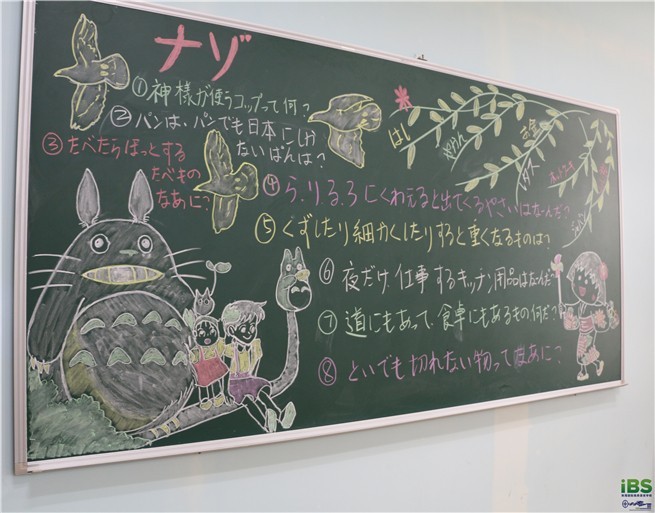 ナゾ
①神様が使うコップって何？
②パンは、パンでも日本にしか
ないぱんは？
③たべたらほっとする
たべもの
なあに？
④ら.り.る.ろにくわえると出てくるやさいはなーんだ？
⑤くずしたり細かくしたりすると重くなるものは？
⑥夜だけ、仕事するキッチン用品はなんだ
⑦道にもあって、食卓にもあるもの何だ？
⑧といでも切れない物ってなあに？
はし
やかん
お金
iBS